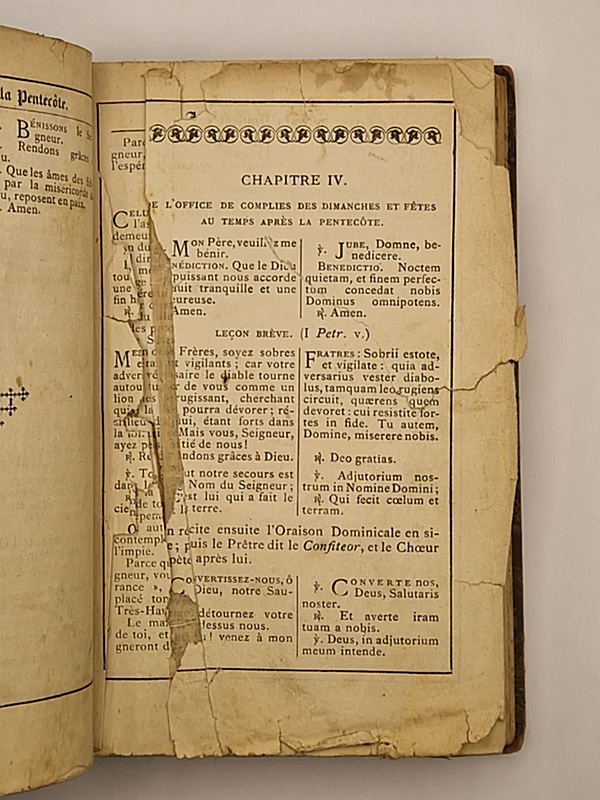 la Pentecôte.
BÉNISSONS le
gneur.
Rendons grâces
Que les âmes des
par la miséricorde
reposent en paix.
Amen.
CHAPITRE IV.
L'OFFICE DE COMPLIES DES DIMANCHES ET FÊTES
AU TEMPS APRÈS LA PENTECÔTE.
MON Père, veuillez me
bénir.
NÉDICTION. Que le Dieu
puissant nous accorde
nuit tranquille et une
eureuse.
Amen.
℣. JUBE, Domne, be-
nedicere.
BENEDICTIO. Noctem
quietam, et finem perfec-
tum concedat nobis
Dominus omnipotens.
℟. Amen.
LEÇON BRÈVE. (I Petr. v.)
Frères, soyez sobres
vigilants ; car votre
saire le diable tourne
de vous comme un
rugissant, cherchant
pourra dévorer ; ré-
lui, étant forts dans
Mais vous, Seigneur,
ayez pitié de nous !
Rendons grâces à Dieu.
FRATRES : Sobrii estote,
et vigilate : quia ad-
versarius vester diabo-
lus, tamquam leo rugiens
circuit, quærens quem
devoret : cui resistite for-
tes in fide. Tu autem,
Domine, miserere nobis.
℟. Deo gratias.
notre secours est
Nom du Seigneur ;
est lui qui a fait le
terre.
℣. Adjutorium nos-
trum in Nomine Domini ;
℟. Qui fecit cœlum et
terram.
récite ensuite l'Oraison Dominicale en si-
puis le Prêtre dit le Confiteor, et le Chœur
après lui.
CONVERTISSEZ-NOUS, ô
Dieu, notre Sau-
détournez votre
dessus nous.
! venez à mon
℣. CONVERTE NOS,
Deus, Salutaris
noster.
℟. Et averte iram
tuam a nobis.
℣. Deus, in adjutorium
meum intende.
contemple
l'impie.
Parce
gneur,
rance »,
placé
Très-Hau
Le
de toi, et
gneront